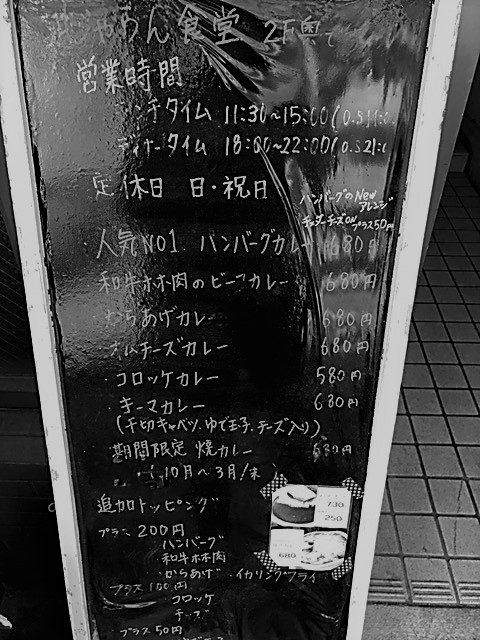 食堂 2F奥
営業時間
タイム 11:30~15:00(O.S
ディナータイム 18:00~22:00(O.S21:
定休日 日・祝日
ハンバーグのNew
アレンジ
チェダーチーズON
プラス50円
・人気NO1. ハンバーグカレー 680円
・和牛ホホ肉のビーフカレー 680円
・からあげカレー 680円
・オムチーズカレー 680円
・コロッケカレー 580円
・キーマカレー 680円
(千切キャベツ、ゆで玉子、チーズ入り)
期間限定 焼カレー 680円
(10月~3月/末)
追加トッピング
プラス 200円
・ハンバーグ
・和牛ホホ肉
・からあげ ・イカリングフライ
プラス 100円
コロッケ
チーズ
プラス 50円
730
250
680